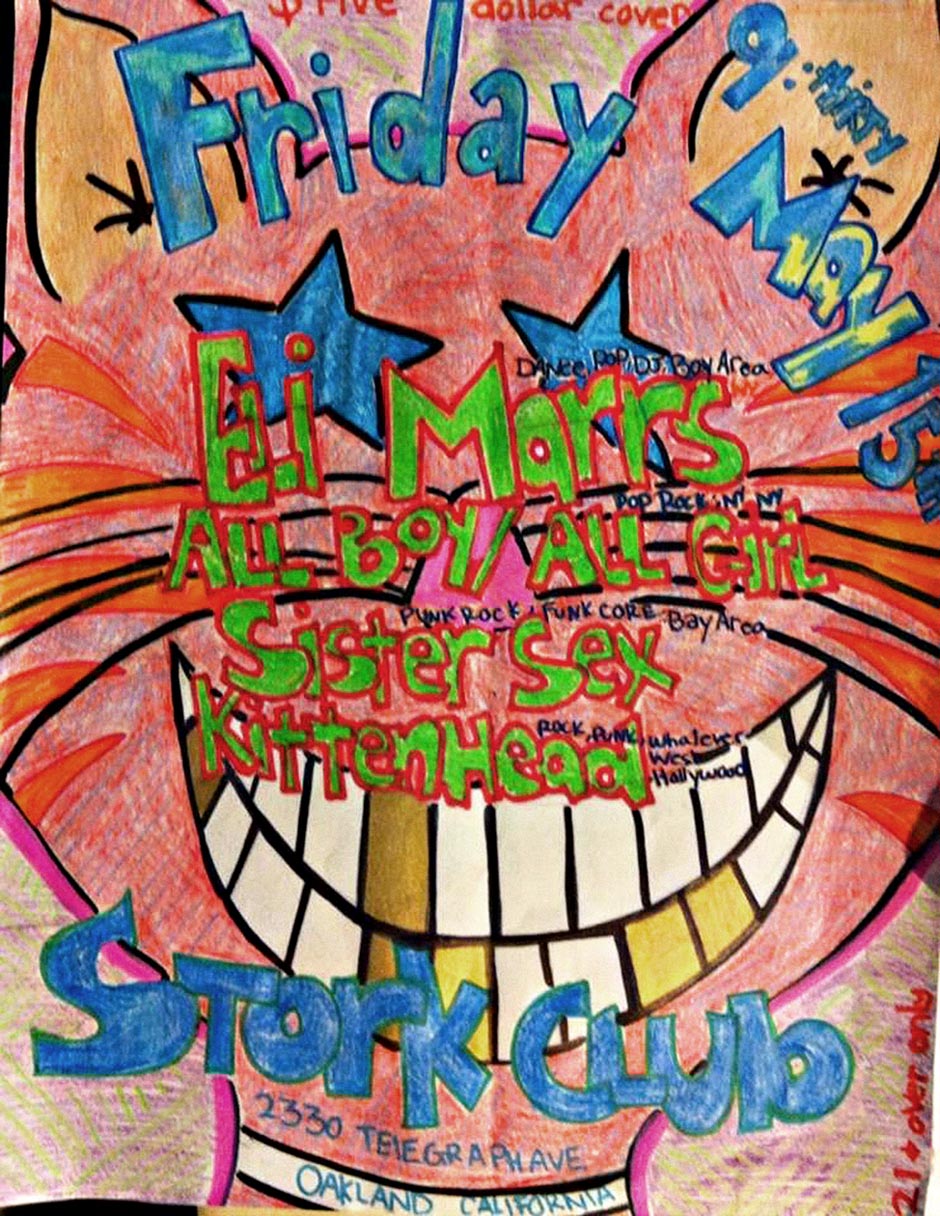 $ Five dollar cover
Friday
9:THIRTY
MAY 15TH
DANCE, POP, DJ, Bay Area
Eli Marrs
POP ROCK, NY NY
ALL BOY/ ALL GIRL
PUNK ROCK, FUNK CORE, Bay Area
Sister Sex
KittenHead
ROCK, PUNK, whatever
West
Hollywood
STORK CLUB
2330 TELEGRAPH AVE
OAKLAND CALIFORNIA
21 & over only